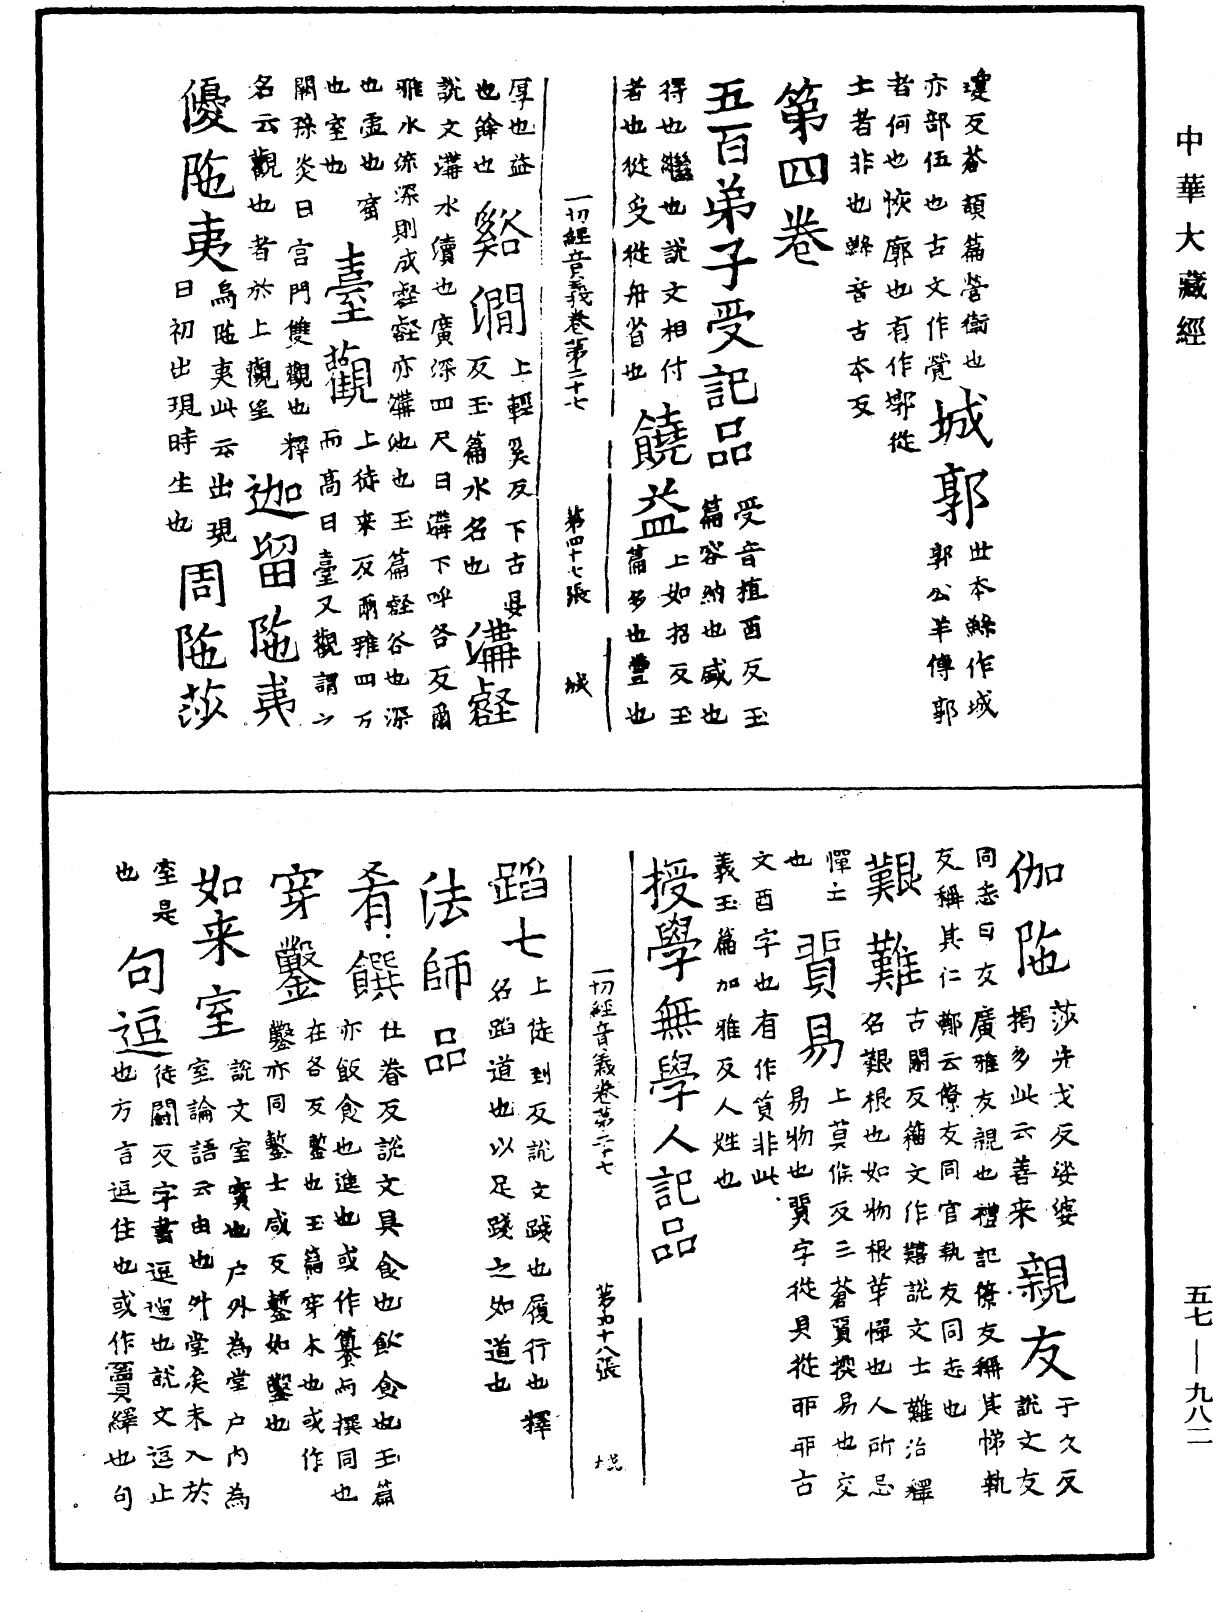 中華大藏經
瓊反蒼頡篇營衛也
亦部伍也古文作㙲城郭世本鯀作城
者何也恢廓也有作郭從郭公羊傳郭
士者非也鯀音古本反
第四卷
五百弟子受記品受音植酉反玉
篇容納也盛也
得也繼也說文相付
者也從受從舟省也饒益上如招反玉
篇多也豐也
一切經音義卷第二十七 第四十七張 城
厚也益
也餘也谿澗上輕奚反下古晏
反玉篇水名也溝壑
說文溝水瀆也廣深四尺曰溝下呼各反爾
雅水流深則成壑壑亦溝池也玉篇壑谷也深
也虛也窟
也室也臺觀上徒來反爾雅四方
而高曰臺又觀謂之
闕孫炎曰宮門雙觀也釋
名云觀也者於上觀望迦留陁夷
優陁夷烏陁夷此云出現
日初出現時生也周陁莎
伽陁莎先戈反娑婆
揭多此云善來親友于久反
說文友
同志曰友廣雅友親也禮記僚友稱其悌執
友稱其仁鄭云僚友同官執友同志也
艱難古閑反籀文作囏說文土難治釋
名艱根也如物根莘憚也人所忌
憚之
也貿易上莫候反三蒼貿換易也交
易物也貿字從貝從丣丣古
文酉字也有作貿非此
義玉篇加雅反人姓也
授學無學人記品
一切經音義卷第二十七 第四十八張 城
蹈七上徒到反說文踐也履行也釋
名蹈道也以足踐之如道也
法師品
肴饌仕眷反說文具食也飲食也玉篇
亦飯食也進也或作籑而撰同也
穿鑿在各反鏨也玉篇穿木也或作
鑿亦同鏨士咸反鏨如鑿也
如來室說文室實也戶外為堂戶內為
室論語云由也外堂矣未入於
室是
也句逗徒闘反字書逗遛也說文逗止
也方言逗住也或作竇繹也句
五七——九八二